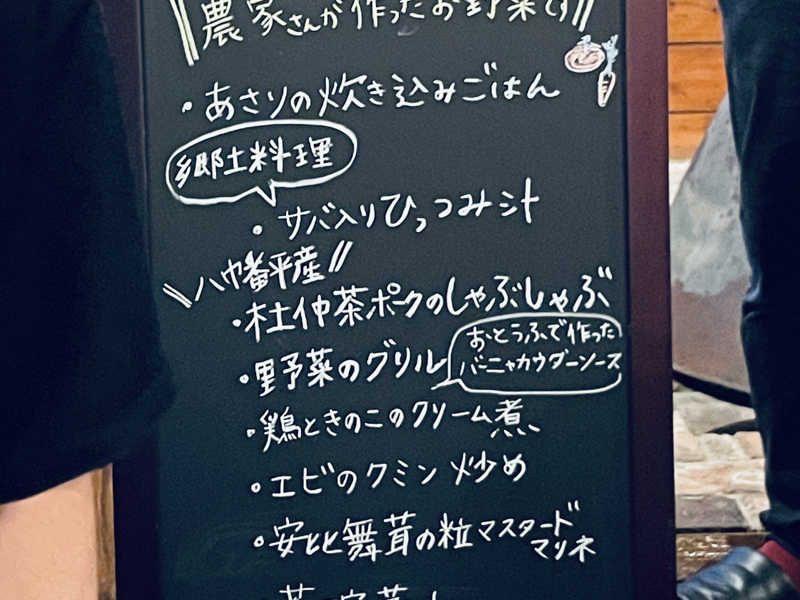 農家さんが作ったお野菜です
・あさりの炊き込みごはん
郷土料理
・サバ入りひっつみ汁
八幡平産
・杜仲茶ポークのしゃぶしゃぶ
・野菜のグリル
おとうふで作った
バーニャカウダーソース
・鶏ときのこのクリーム煮
・エビのクミン炒め
・安とと舞茸の粒マスタード
マリネ